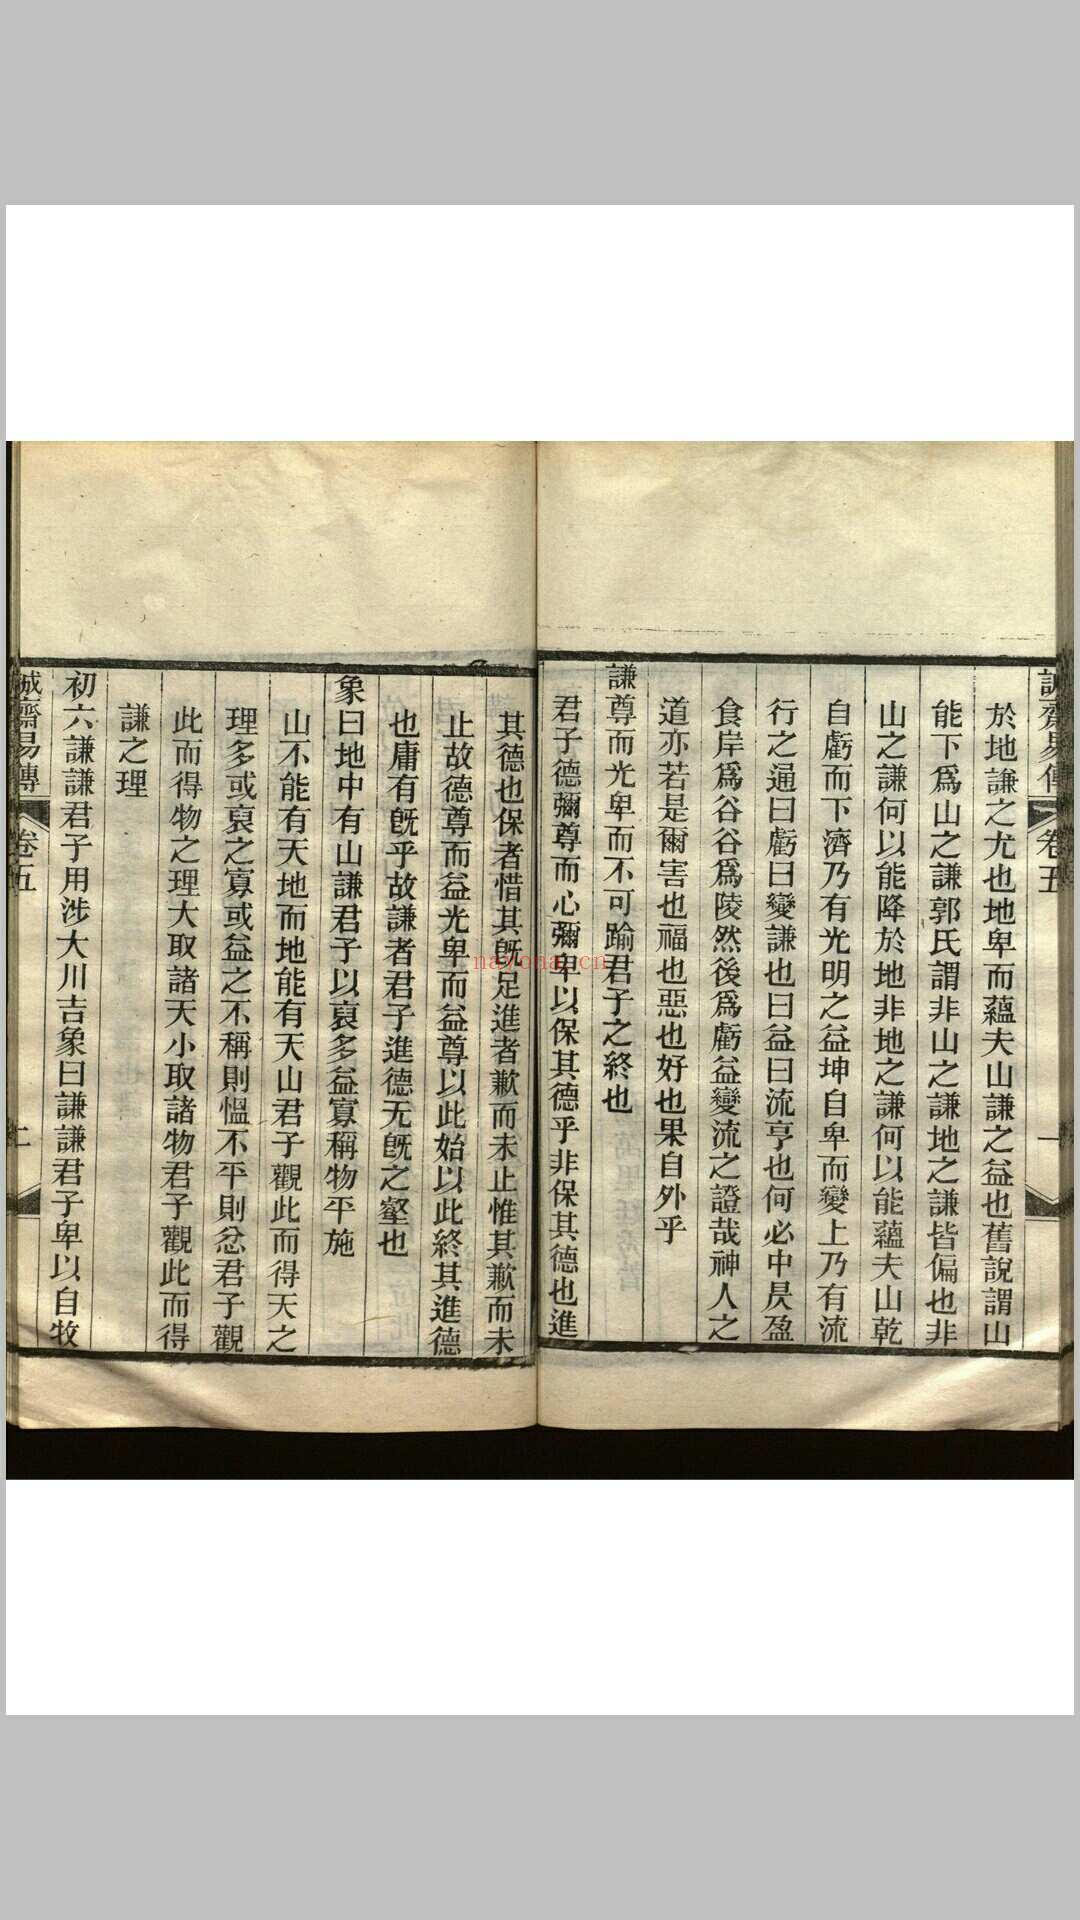 誠齋易傳 卷五 一
於地謙之尤也地卑而蘊夫山謙之益也舊說謂山
能下爲山之謙郭氏謂非山之謙地之謙皆偏也非
山之謙何以能降於地非地之謙何以能蘊夫山乾
自虧而下濟乃有光明之益坤自卑而變上乃有流
行之通曰虧曰變謙也曰益曰流亨也何必中昃盈
食岸爲谷谷爲陵然後爲虧益變流之證哉神人之
道亦若是爾害也福也惡也好也果自外乎
謙尊而光卑而不可踰君子之終也
君子德彌尊而心彌卑以保其德乎非保其德也進
其德也保者惜其旣足進者歉而未止惟其歉而未
止故德尊而益光卑而益尊以此始以此終其進德
也庸有旣乎故謙者君子進德无旣之壑也
象曰地中有山謙君子以裒多益寡稱物平施
山不能有天地而地能有天山君子觀此而得天之
理多或裒之寡或益之不稱則慍不平則忿君子觀
此而得物之理大取諸天小取諸物君子觀此而得
謙之理
初六謙謙君子用涉大川吉象曰謙謙君子卑以自牧
誠齋易傳 卷五
nayona.cn